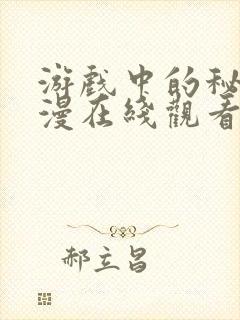 游戲中的秘
漫在綫觀看
郝立昌